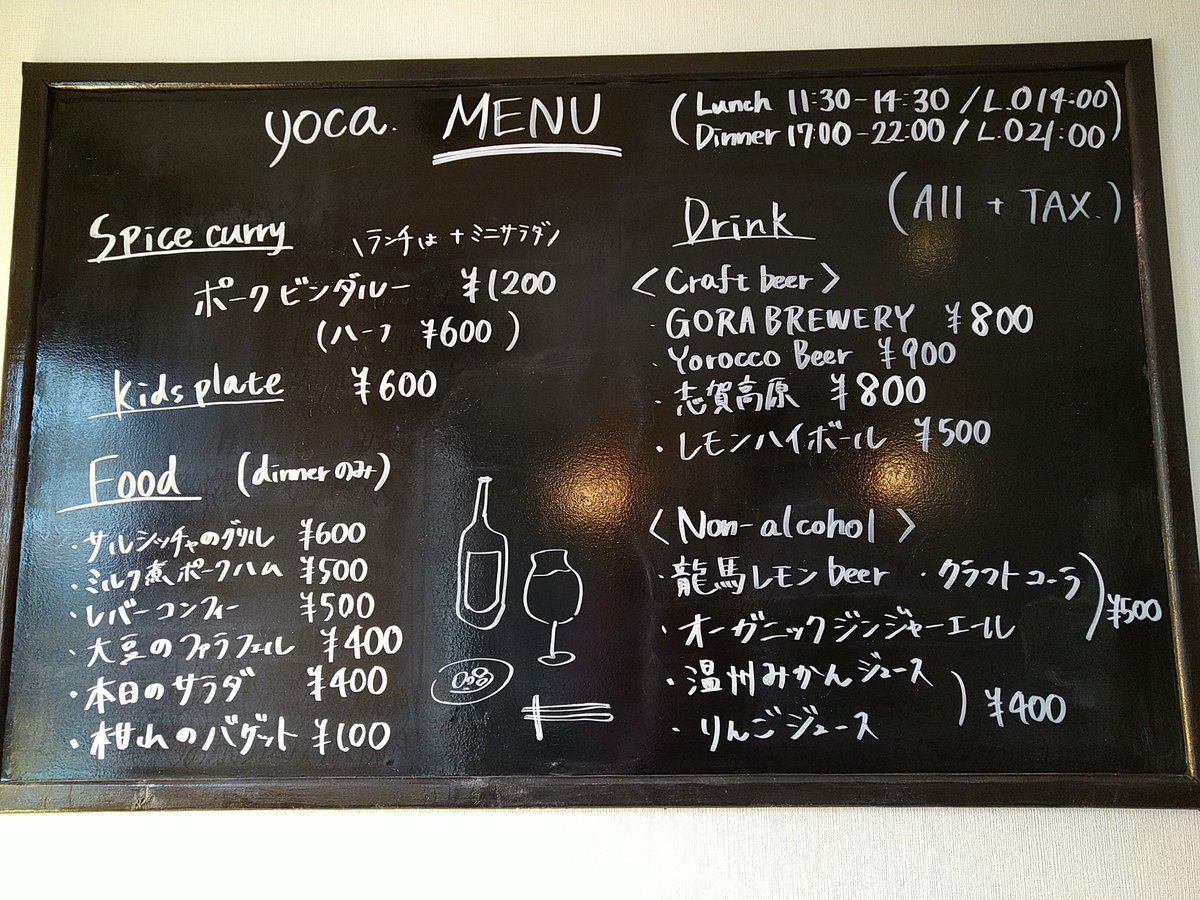 yoca. MENU
(Lunch 11:30-14:30 / L.O 14:00
Dinner 17:00-22:00 / L.O 21:00)
(All + TAX.)
Spice curry
\ランチは+ミニサラダ/
ポークビンダルー ¥1200
(ハーフ ¥600)
kids plate ¥600
Food (dinnerのみ)
・サルシッチャのグリル ¥600
・ミルク煮ポークハム ¥500
・レバーコンフィー ¥500
・大豆のファラフェル ¥400
・本日のサラダ ¥400
・のバゲット ¥100
Drink
<Craft beer>
・GORA BREWERY ¥800
・Yorocco Beer ¥900
・志賀高原 ¥800
・レモンハイボール ¥500
<Non-alcohol>
・龍馬レモンbeer ・クラフトコーラ
・オーガニックジンジャーエール
)¥500
・温州みかんジュース
・りんごジュース
)¥400